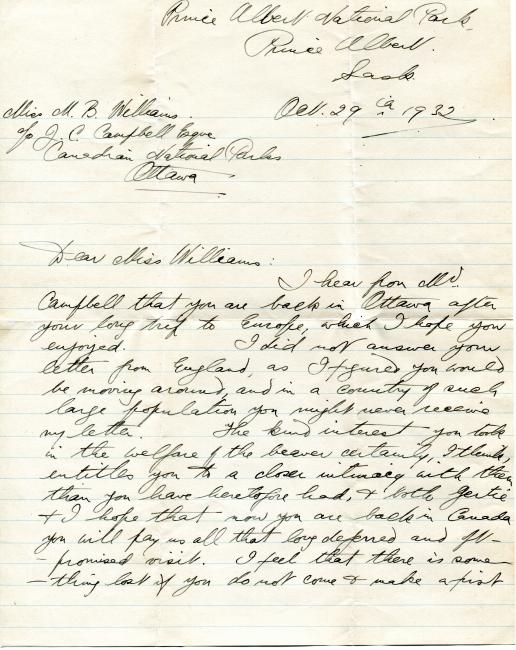 Prince Albert National Park,
Prince Albert.
Sask.
Oct. 29th 1932
Miss M. B. Williams
c/o J. C. Campbell Esque
Canadian National Parks
Ottawa
Dear Miss Williams:
I hear from Mr.
Campbell that you are back in Ottawa after
your long trip to Europe, which I hope you
enjoyed. I did not answer your
letter from England, as I figured you would
be moving around, and in a country of such
large population you might never receive
my letter. The kind interest you took
in the welfare of the beaver certainly, I think,
entitles you to a closer intimacy with them
than you have heretofore had, & both Gertie
& I hope that now you are back in Canada
you will pay us all that long deferred and oft-
-promised visit. I feel that there is some-
-thing lost if you do not come & make a first